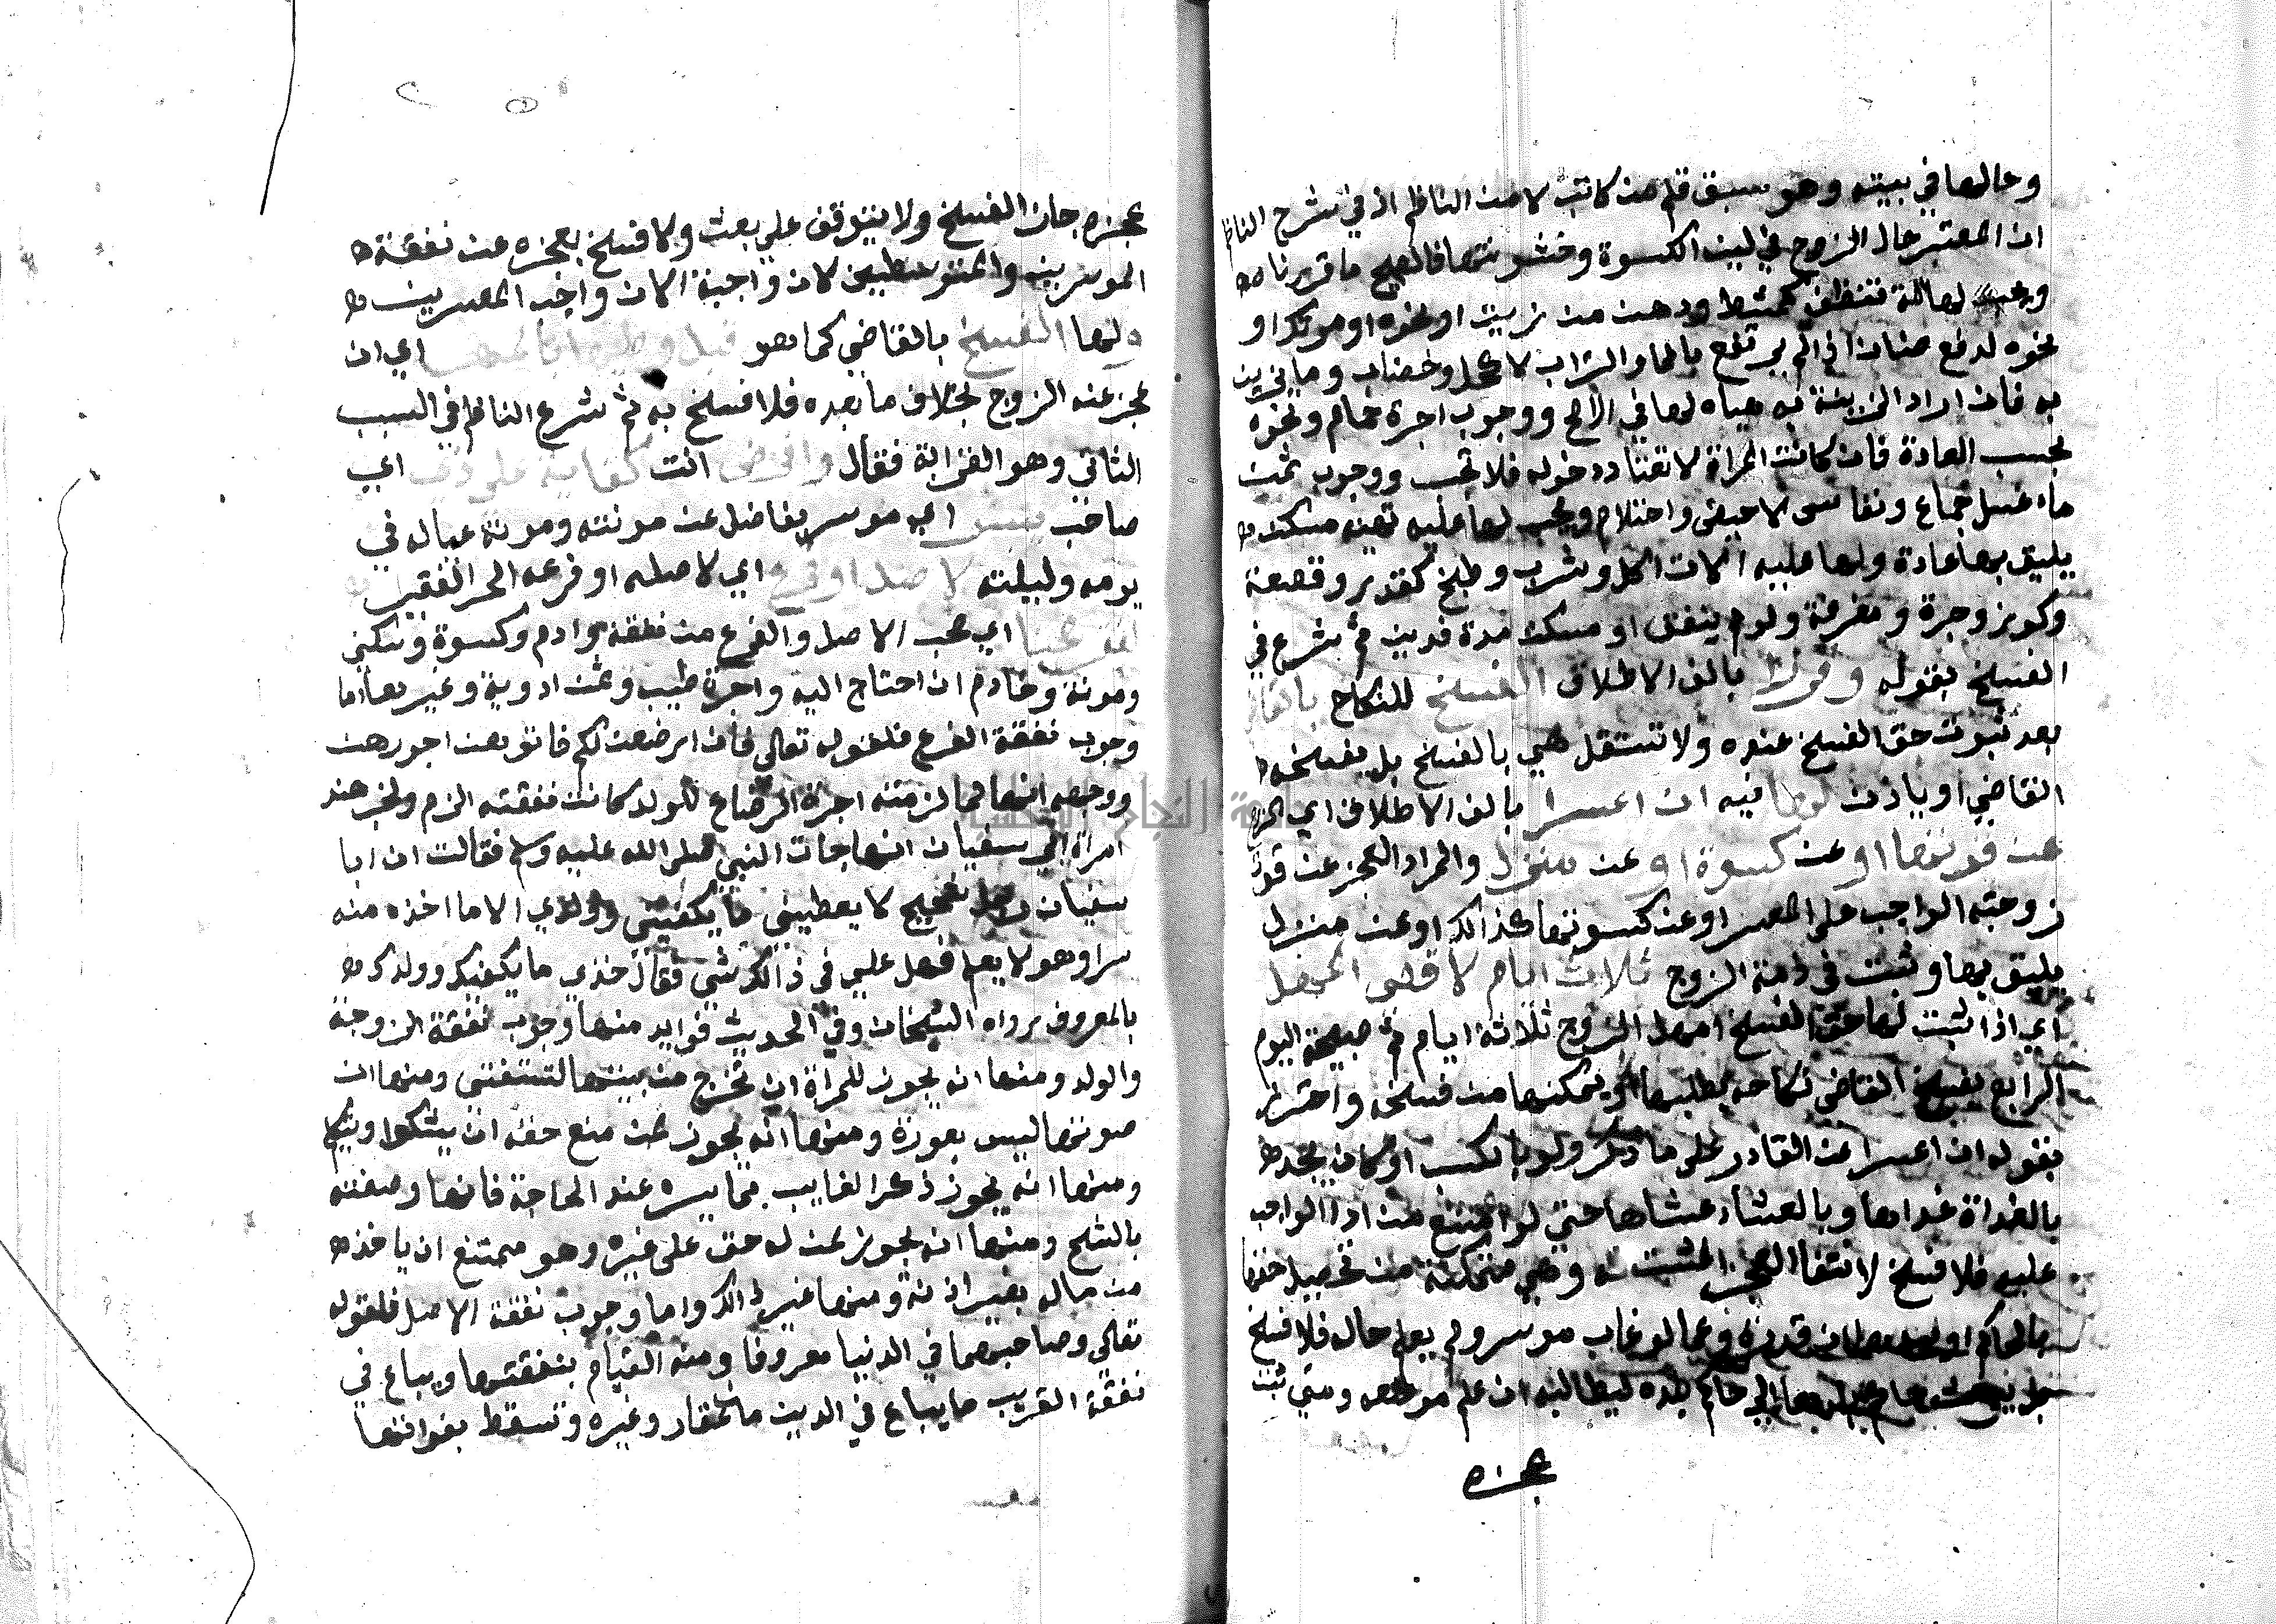 وحالها في بيته وهو سبق قلم من كاتب لا من الناظم اذ في شرح الناظم
ان المعتبر حال الزوج في لين الكسوة وخشونتها فالصحيح ما قررناه
ويجب لها الة تنظف كمشط ودهن من زيت او نحوه او مرتك او
نحوه لدفع صنان اذ لم يرتفع بالما والتراب لا كحل وخضاب وما يزين
به فان اراد الزينة به هياه لها في الاصح ووجوب اجرة حمام ونحوه
بحسب العادة فان كانت المراة لا تعتاد دخوله فلا تجب ووجوب ثمن
ماء غسل جماع ونفاس لا حيض واحتلام ويجب لها عليه تهيئه مسكن
يليق بها عادة ولها عليه الات اكل وشرب وطبخ كقدر وقصعة
وكوز وجرة ومغرفة ولو لم ينفق او مسكن مدة فدين ثم شرع في
الفسخ بقوله بالف الاطلاق الفسخ للنكاح
بعد ثبوت حق الفسخ عنده ولا تستقل هي بالفسخ بل يفسخه
القاضي او ياذن لها فيه ان اعسرا بالف الاطلاق اي الزوج
عن قوتها او عن كسوة او عن منزل والمراد العجز عن قوت
زوجته الواجب على المعسر او عن كسوتها كذالك او عن منزل
يليق بها وثبت في ذمة الزوج ثلاث ايام لاقصى المهل
اي اذا ثبت لها حق الفسخ امهل الزوج ثلاثة ايام ثم صبيحة اليوم
الرابع يفسخ القاضي نكاحه بطلبها او يمكنها من فسخه واحترز
بقوله ان اعسرا عن القادر على ما ذكر ولو بالكسب او كان يجد
بالغداة غداها وبالعشاء عشاها حتى لو امتنع من اداء الواجب
عليه فلا فسخ لانتفا العجز المثبت له وهي متمكنة من تحصيل حقها
بالحاكم او وعما لو غاب موسر ولم يعلم حاله فلا فسخ
بل الي حاكم بلده ليطالبه ان علم موضعه ومتي ثبت
عجزه
عجزه جاز الفسخ ولا يتوقف علي بعث ولا فسخ بعجزه عن نفقة
الموسرين والمتوسطين لان واجبه الان واجب المعسرين
ولها الفسخ بالقاضي كما هو قبل اي ان
عجز عنه الزوج بخلاف ما بعده فلا فسخ به ثم شرع الناظم في السبب
الثاني وهو القرابة فقال وافرض انت كفاية علي ذي اي
صاحب يسر اي موسر بفاضل عن مونته ومونة عياله في
يومه وليلته لاصل او فرع اي لاصله او فرعه الحر الفقير
اي يجب الاصل والفرع من نفقة بادم وكسوة وسكني
ومونة وخادم ان احتاج اليه واجرة طبيب وثمن ادوية وغيرها اما
وجوب نفقة الفرع فلقوله تعالي فان ارضعن لكم فاتوهن اجورهن
ووجهه انها لما لزمته اجرة الرضاع للولد كانت نفقته الزم ولخبر هند
امراة ابي سفيان انها جات النبي صلى الله عليه وسلم فقالت ان ابا
سفيان رجل شحيح لا يعطيني ما يكفيني وولدي الا ما اخذه منه
سرا وهو لا يعلم فهل علي في ذالك شي فقال خذي ما يكفيك وولدك
بالمعروف رواه الشيخان وفي الحديث فوايد منها وجوب نفقة الزوجة
والولد ومنها انه يجوز للمراة ان تخرج من بيتها لتستفتي ومنها ان
صوتها ليس بعورة ومنها انه يجوز لمن منع حقه ان يشكوا ويتكلم
ومنها انه يجوز ذكر الغايب بما يسره عند الحاجة فانها وصفته
بالشح ومنها انه يجوز لمن له حق على غيره وهو ممتنع ان ياخذه
من ماله بغير اذنه ومنها غير ذالك واما وجوب نفقة الاصل فلقوله
تعالي وصاحبهما في الدنيا معروفا ومنه القيام بنفقتهما ويباع في
نفقة القريب ما يباع في الدين من عقار وغيره وتسقط بفواتها